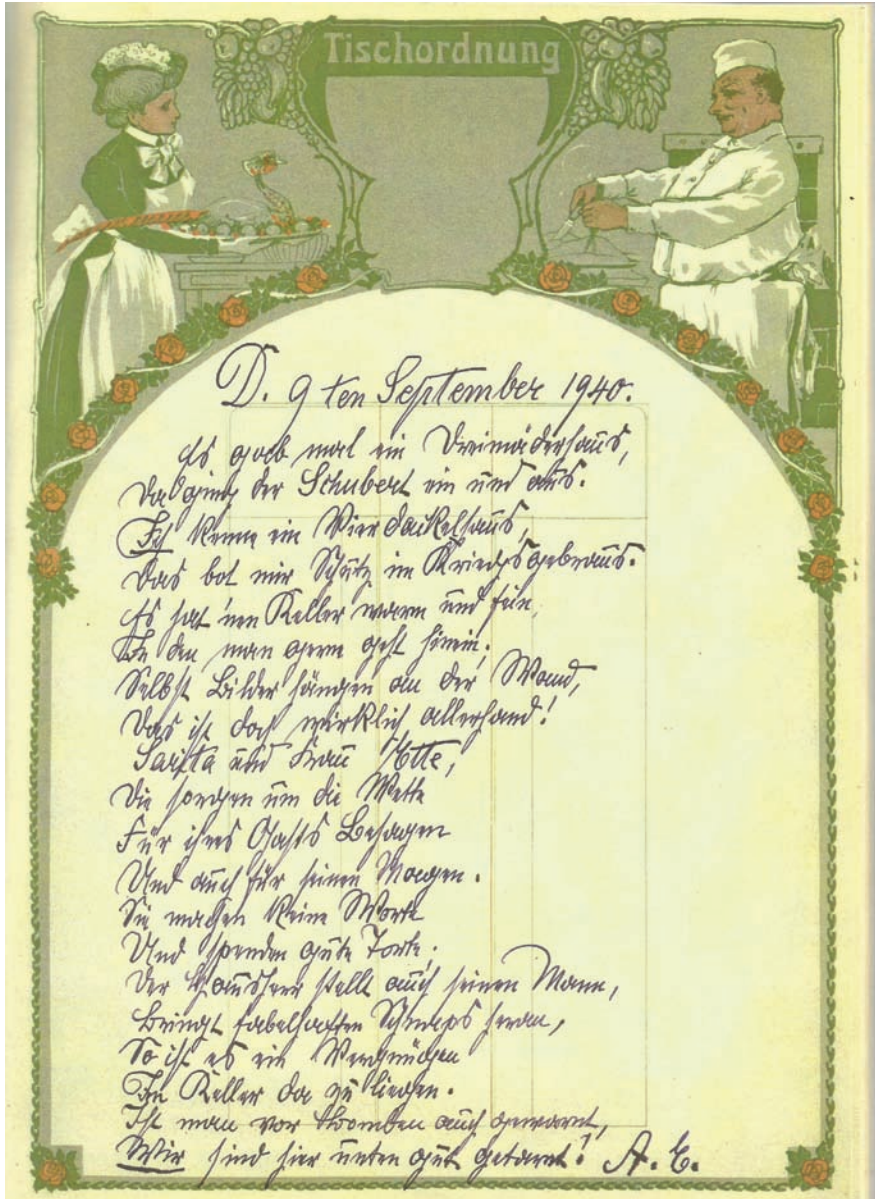 Tischordnung
D. 9ten September 1940.
Es gab mal ein Dreimäderlhaus,
Da ging der Schubert ein und aus.
Ich kenne ein Vierdackelhaus,
Das bot mir Schutz im Kriegsgebraus.
Es hat 'nen Keller warm und fein,
In den man gern geht hinein;
Selbst Bilder hängen an der Wand,
Das ist doch wirklich allerhand!
und Frau
Die sorgen um die Wette
Für ihres Gasts Behagen
Und auch für seinen Magen.
Sie machen keine Worte
Und spenden gute Torte;
Der Hausherr stellt auch seinen Mann,
Bringt fabelhaften Schnaps heran,
So ist es ein Vergnügen
Im Keller da zu liegen.
Ist man vor Bomben auch gewarnt,
Wir sind hier unten gut getarnt! A. E.